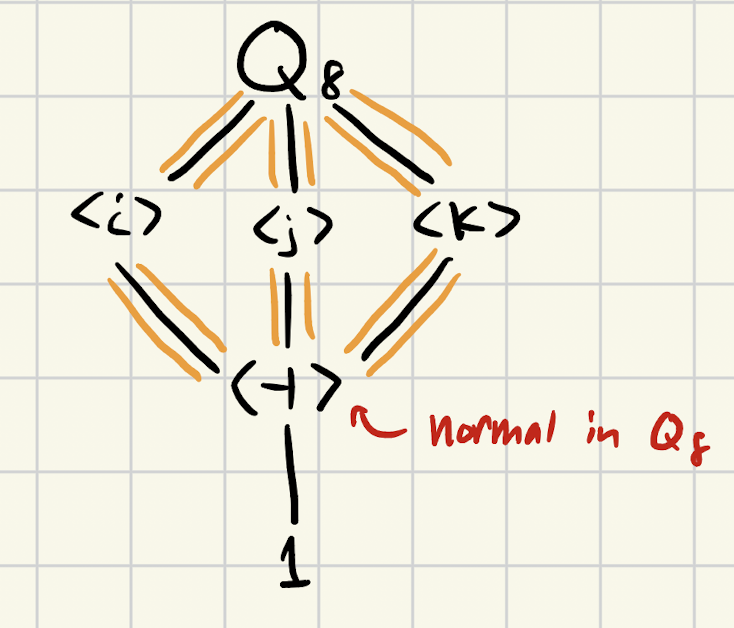 Q8
<i> <j> <k>
<-1>
normal in Q8
1